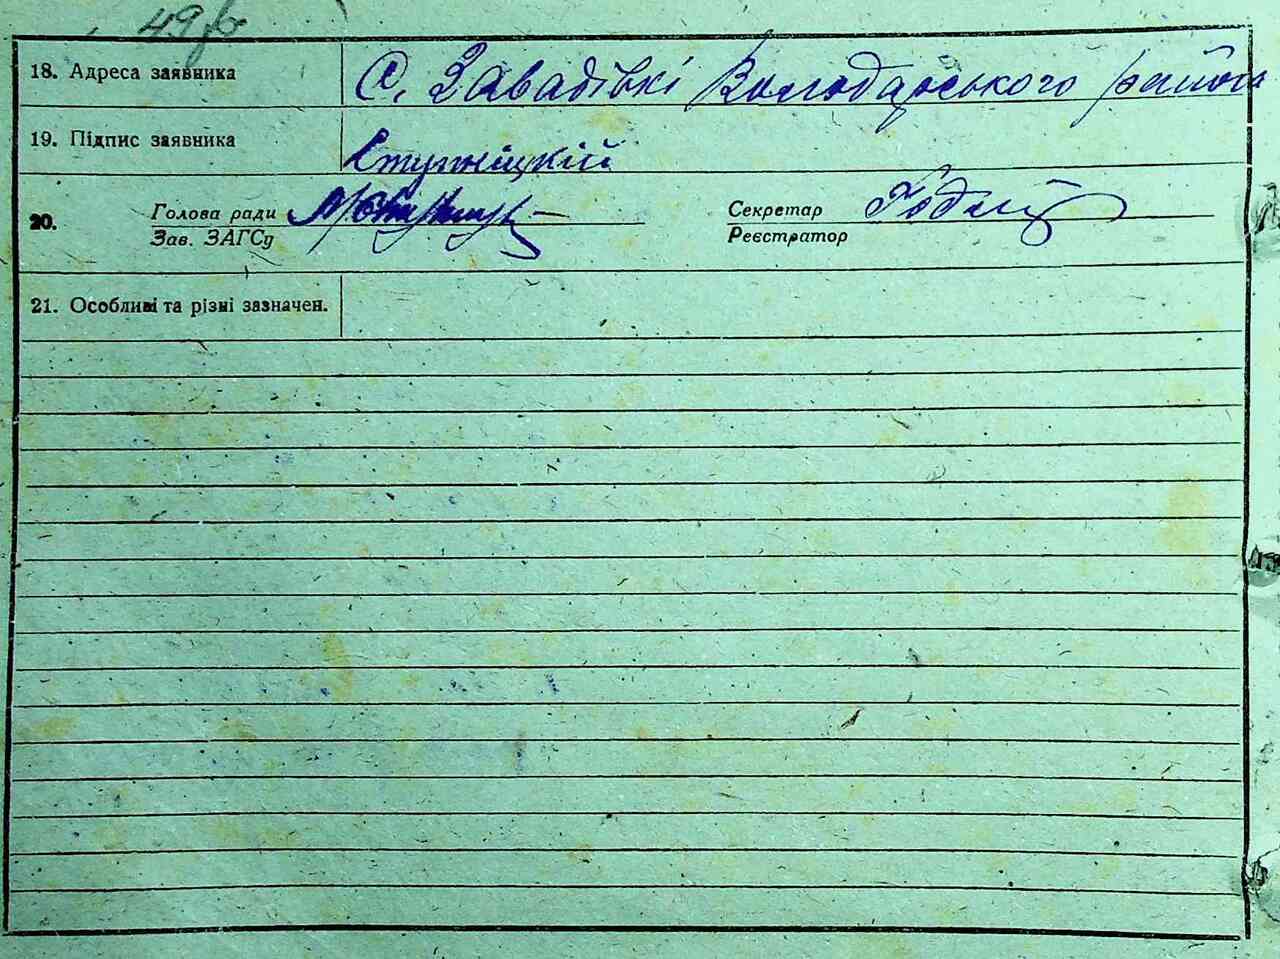 49зв
18. Адреса заявника С. Завадівкі Володарського району
19. Підпис заявника Ступніцкій
20. Голова ради Секретар
Зав. ЗАГСу Реєстратор
21. Особливі та різні зазначен.